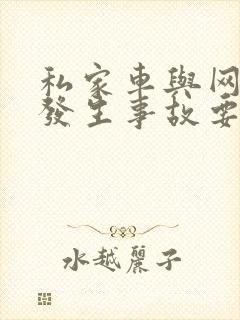 私家車與网
發生事故要
水越麗子